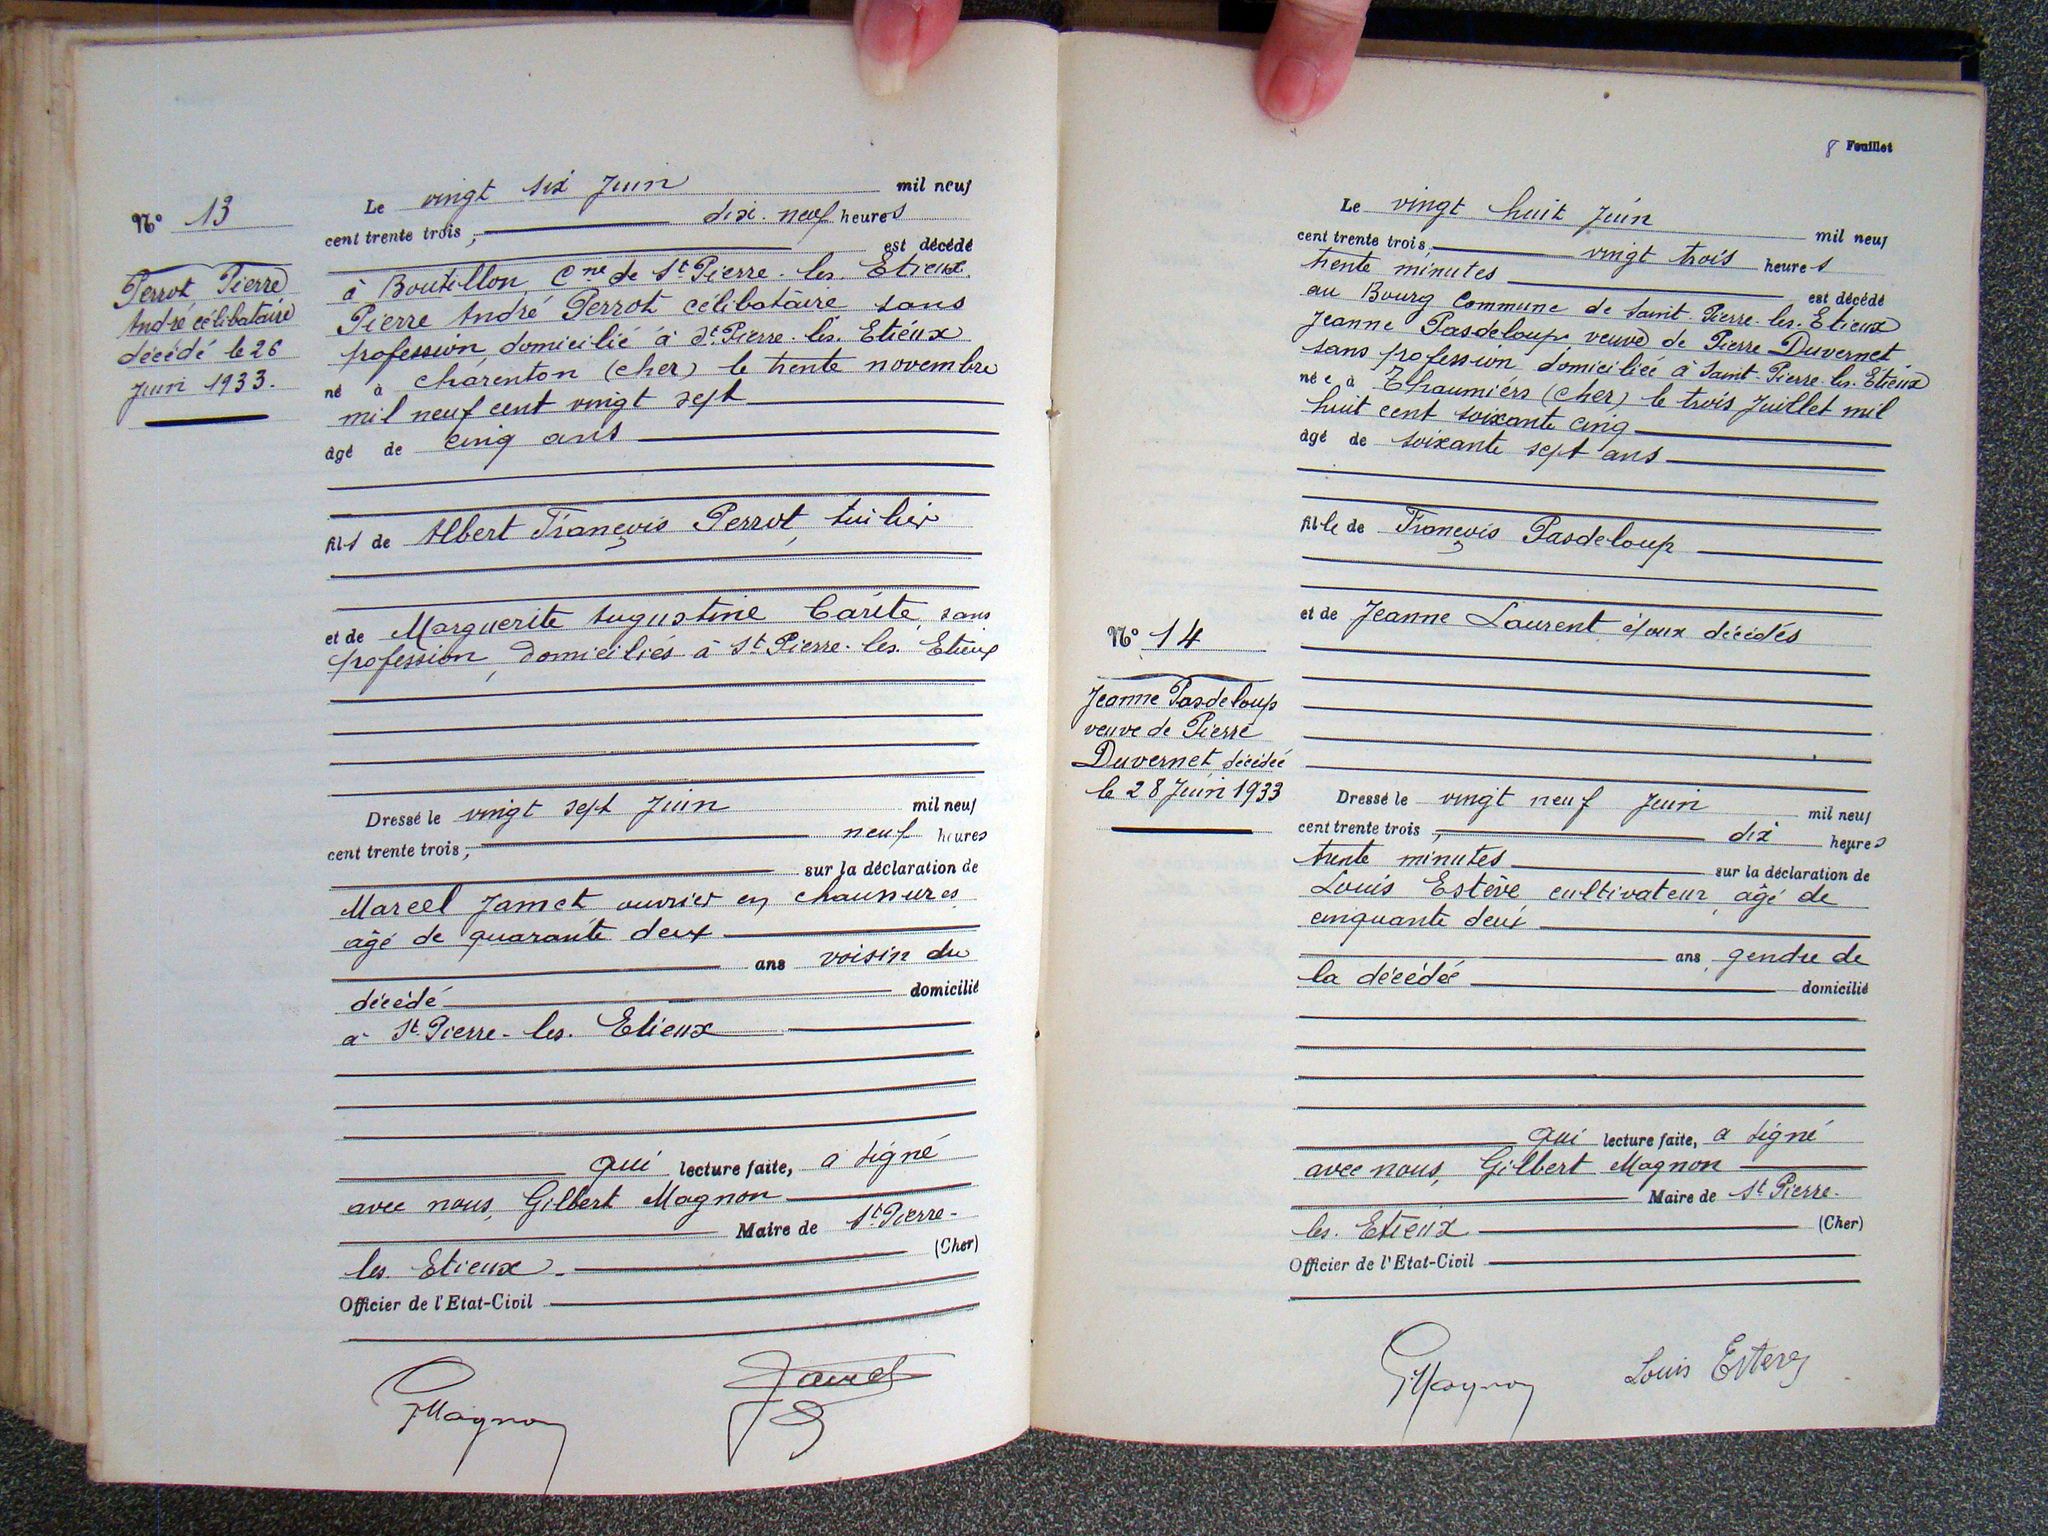 N° 13
Perrot, Pierre
André célibataire
décédé le 26
Juin 1933.
Le vingt six Juin mil neuf
cent trente trois, dix-neuf heures
est décédé
à Boutillon, Cne de St Pierre-les-Etieux
Pierre André Perrot célibataire sans
profession, domicilié à St Pierre-les-Etieux
né à Charenton (Cher) le trente novembre
mil neuf cent vingt sept
âgé de cinq ans
fils de Albert François Perrot, tuilier
et de Marguerite Augustine Carite, sans
profession, domiciliés à St Pierre-les-Etieux
Dressé le vingt sept Juin mil neuf
cent trente trois, neuf heures
sur la déclaration de
Marcel Jamet ouvrier en chaussures
âgé de quarante deux
ans voisin du
décédé domicilié
à St Pierre-les-Etieux
qui lecture faite, a signé
avec nous, Gilbert Magnon
Maire de St Pierre-
les-Etieux (Cher)
Officier de l'Etat-Civil
GMagnon Jamet
8 Feuillet
Le vingt huit Juin mil neuf
cent trente trois, vingt trois heures
trente minutes est décédé
au Bourg Commune de Saint-Pierre-les-Etieux
Jeanne Pasdeloup, veuve de Pierre Duvernet
sans profession domiciliée à Saint-Pierre-les-Etieux
née à Thaumiers (Cher) le trois Juillet mil
huit cent soixante cinq
âgé de soixante sept ans
fille de François Pasdeloup
et de Jeanne Laurent, époux décédés
N° 14
Jeanne Pasdeloup
veuve de Pierre
Duvernet décédée
le 28 Juin 1933
Dressé le vingt neuf Juin mil neuf
cent trente trois, dix heures
trente minutes sur la déclaration de
Louis Estève, cultivateur, âgé de
cinquante deux
ans, gendre de
la décédée domicilié
qui lecture faite, a signé
avec nous, Gilbert Magnon
Maire de St Pierre-
les-Etieux (Cher)
Officier de l'Etat-Civil
GMagnon Louis Esteve